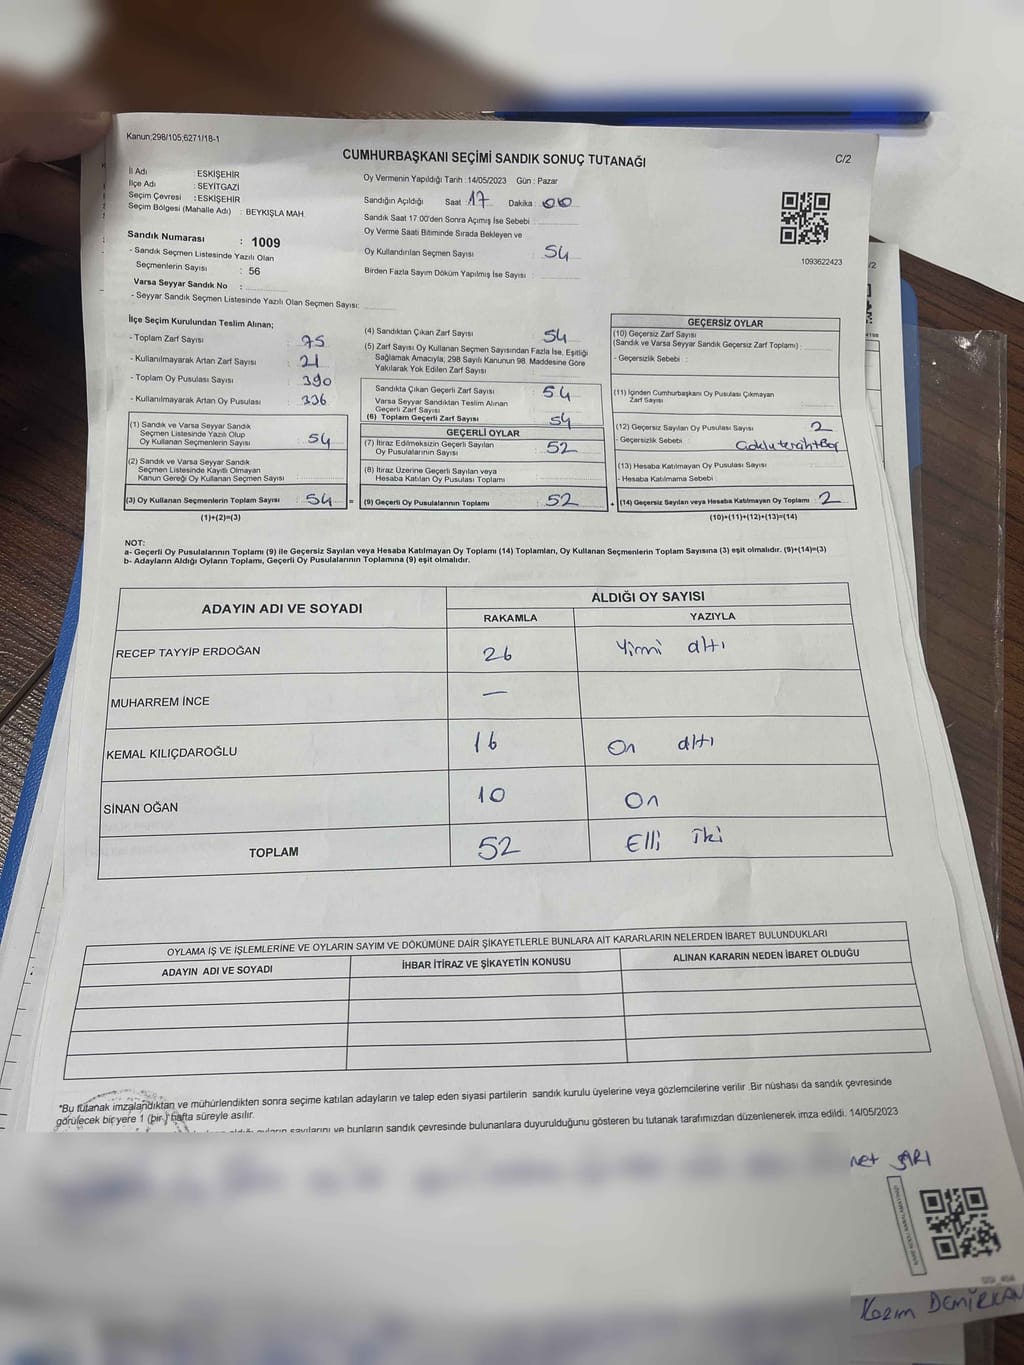 Kanun;298/105;6271/18-1
CUMHURBAŞKANI SEÇİMİ SANDIK SONUÇ TUTANAĞI
C/2
İl Adı : ESKİŞEHİR
İlçe Adı : SEYİTGAZİ
Seçim Çevresi : ESKİŞEHİR
Seçim Bölgesi (Mahalle Adı) : BEYKIŞLA MAH.
Sandık Numarası : 1009
- Sandık Seçmen Listesinde Yazılı Olan
Seçmenlerin Sayısı : 56
Varsa Seyyar Sandık No :
- Seyyar Sandık Seçmen Listesinde Yazılı Olan Seçmen Sayısı:
Oy Vermenin Yapıldığı Tarih :14/05/2023 Gün : Pazar
Sandığın Açıldığı Saat : 17 Dakika : 00
Sandık Saat 17:00'den Sonra Açımış İse Sebebi :
Oy Verme Saati Bitiminde Sırada Bekleyen ve
Oy Kullandırılan Seçmen Sayısı : 54
Birden Fazla Sayım Döküm Yapılmış İse Sayısı :
1093622423
İlçe Seçim Kurulundan Teslim Alınan;
- Toplam Zarf Sayısı : 75
- Kullanılmayarak Artan Zarf Sayısı : 21
- Toplam Oy Pusulası Sayısı : 390
- Kullanılmayarak Artan Oy Pusulası : 336
(1) Sandık ve Varsa Seyyar Sandık
Seçmen Listesinde Yazılı Olup
Oy Kullanan Seçmenlerin Sayısı : 54
(2) Sandık ve Varsa Seyyar Sandık
Seçmen Listesinde Kayıtlı Olmayan
Kanun Gereği Oy Kullanan Seçmen Sayısı :
(3) Oy Kullanan Seçmenlerin Toplam Sayısı : 54 =
(1)+(2)=(3)
(4) Sandıktan Çıkan Zarf Sayısı : 54
(5) Zarf Sayısı Oy Kullanan Seçmen Sayısından Fazla İse, Eşitliği
Sağlamak Amacıyla, 298 Sayılı Kanunun 98. Maddesine Göre
Yakılarak Yok Edilen Zarf Sayısı :
Sandıkta Çıkan Geçerli Zarf Sayısı : 54
Varsa Seyyar Sandıktan Teslim Alınan
Geçerli Zarf Sayısı :
(6) Toplam Geçerli Zarf Sayısı : 54
GEÇERLİ OYLAR
(7) İtiraz Edilmeksizin Geçerli Sayılan
Oy Pusulalarının Sayısı : 52
(8) İtiraz Üzerine Geçerli Sayılan veya
Hesaba Katılan Oy Pusulası Toplamı :
(9) Geçerli Oy Pusulalarının Toplamı : 52 +
GEÇERSİZ OYLAR
(10) Geçersiz Zarf Sayısı
(Sandık ve Varsa Seyyar Sandık Geçersiz Zarf Toplamı) :
- Geçersizlik Sebebi :
(11) İçinden Cumhurbaşkanı Oy Pusulası Çıkmayan
Zarf Sayısı :
(12) Geçersiz Sayılan Oy Pusulası Sayısı : 2
- Geçersizlik Sebebi :
(13) Hesaba Katılmayan Oy Pusulası Sayısı :
- Hesaba Katılmama Sebebi :
(14) Geçersiz Sayılan veya Hesaba Katılmayan Oy Toplamı : 2
(10)+(11)+(12)+(13)=(14)
NOT:
a- Geçerli Oy Pusulalarının Toplamı (9) ile Geçersiz Sayılan veya Hesaba Katılmayan Oy Toplamı (14) Toplamları, Oy Kullanan Seçmenlerin Toplam Sayısına (3) eşit olmalıdır. (9)+(14)=(3)
b- Adayların Aldığı Oyların Toplamı, Geçerli Oy Pusulalarının Toplamına (9) eşit olmalıdır.
ADAYIN ADI VE SOYADI
ALDIĞI OY SAYISI
RAKAMLA YAZIYLA
RECEP TAYYİP ERDOĞAN 26 Yirmi altı
MUHARREM İNCE —
KEMAL KILIÇDAROĞLU 16 On altı
SİNAN OĞAN 10 On
TOPLAM 52 Elli iki
OYLAMA İŞ VE İŞLEMLERİNE VE OYLARIN SAYIM VE DÖKÜMÜNE DAİR ŞİKAYETLERLE BUNLARA AİT KARARLARIN NELERDEN İBARET BULUNDUKLARI
ADAYIN ADI VE SOYADI İHBAR İTİRAZ VE ŞİKAYETİN KONUSU ALINAN KARARIN NEDEN İBARET OLDUĞU
*Bu tutanak imzalandıktan ve mühürlendikten sonra seçime katılan adayların ve talep eden siyasi partilerin sandık kurulu üyelerine veya gözlemcilerine verilir .Bir nüshası da sandık çevresinde
görülecek bir yere 1 (bir ) hafta süreyle asılır.
sayılarını ve bunların sandık çevresinde bulunanlara duyurulduğunu gösteren bu tutanak tarafımızdan düzenlenerek imza edildi. 14/05/2023
net SARI
Kazım DEMİRKAN